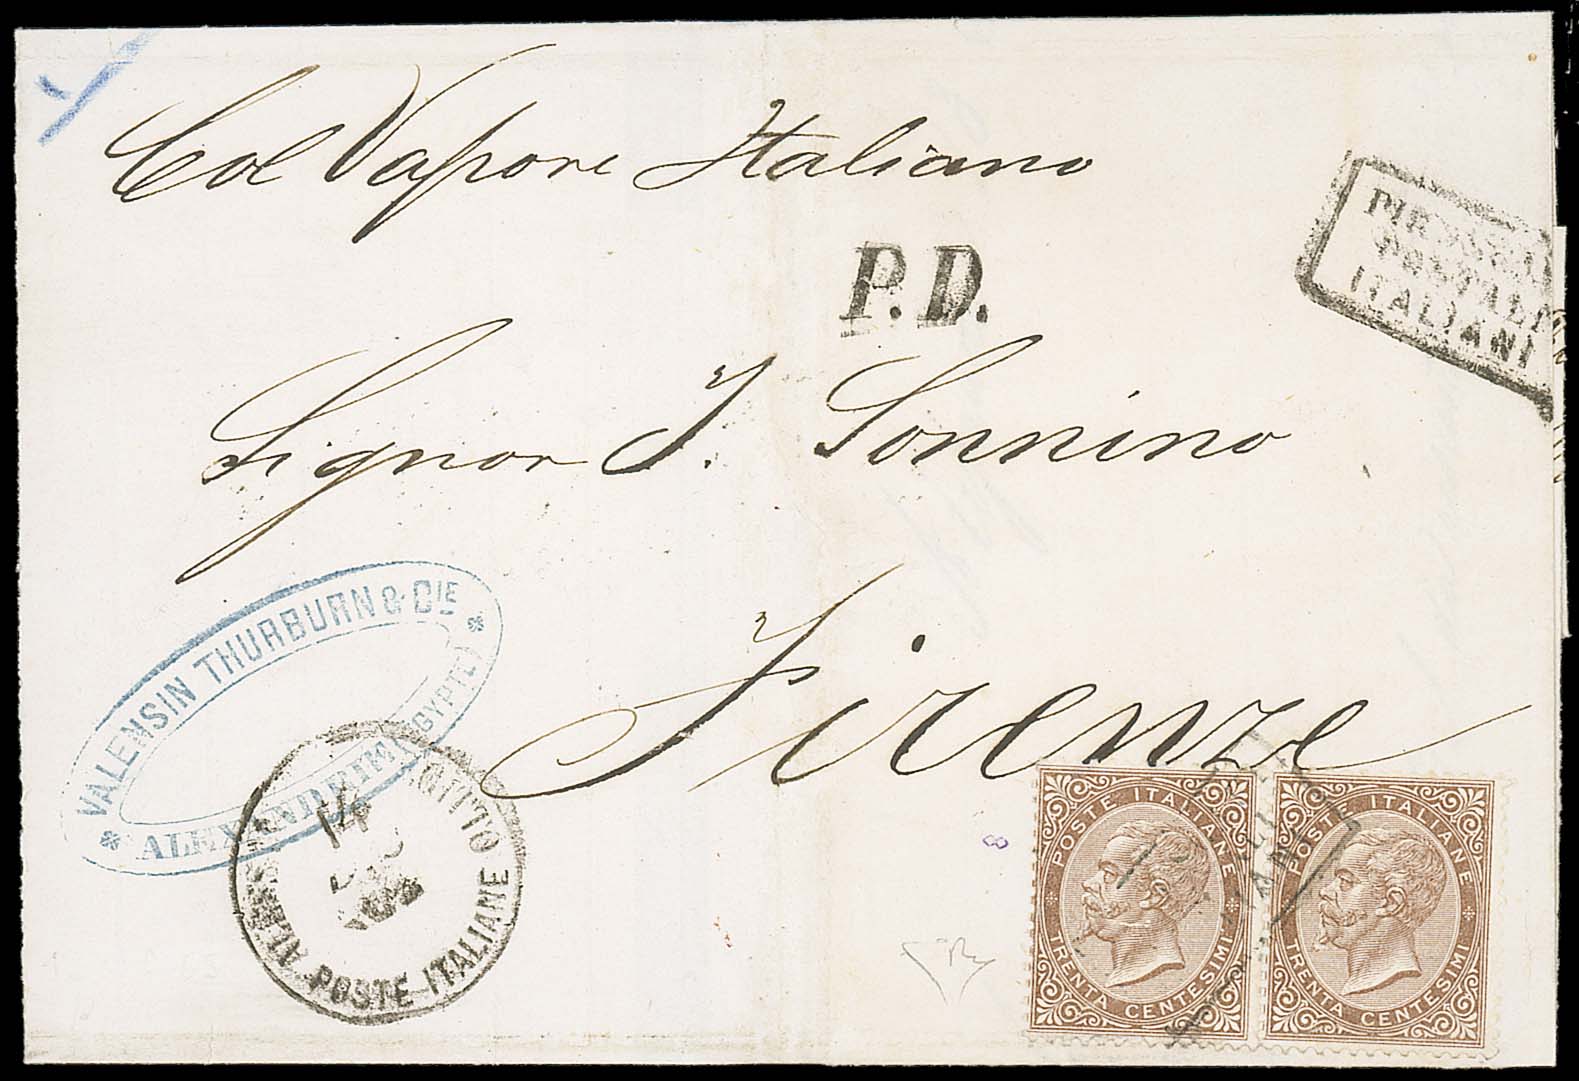 Col Vapore Italiano
P.D.
PIROSCAFI
POSTALI
ITALIANI
Signor I. Sonnino
Firenze
VALENSIN THURBURN & CIE
ALEXANDRIE (EGYPTE)
ALESS. D'EGITTO
14
POSTE ITALIANE
8
POSTE ITALIANE
TRENTA CENTESIMI
POSTE ITALIANE
TRENTA CENTESIMI